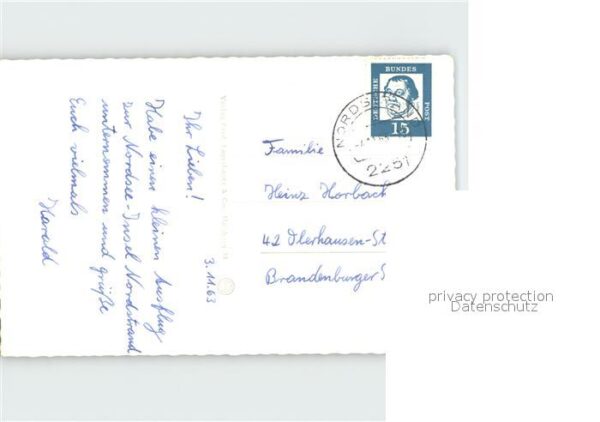 3.11.63
Ihr Lieben!
Habe einen kleinen Ausflug
zur Nordsee-Insel Nordstrand
unternommen und grüße
Euch vielmals
Harald
DEUTSCHE
BUNDES
POST
15
2251
Familie
Heinz Horbach
42 Oberhausen-St
Brandenburger S
privacy protection
Datenschutz